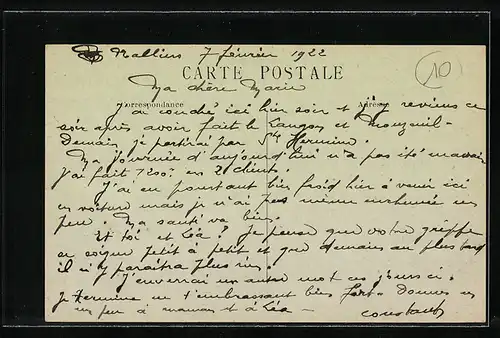 Nalliers 7 février 1922
10
CARTE POSTALE
Ma chère Marie
Correspondance
Adresse
J'ai couché ici hier soir et j'y reviens ce
soir après avoir fait le Langon et Mouzeuil-
Demain je partirai par Ste Hermine.
Ma journée d'aujourd'hui n'a pas été mauvaise
j'ai fait 7250f en 21 clients.
J'ai eu pourtant bien froid hier à venir ici
en voiture mais je n'ai pas même enrhumé un
peu. Ma santé va bien.
Et toi et Léa? Je pense que votre grippe
se soigne petit à petit et que demain au plus tard
il n'y paraîtra plus rien.
J'enverrai un autre mot ces jours ci.
Je termine en t'embrassant bien fort. Donnes en
un peu à maman et à Léa -
Constant